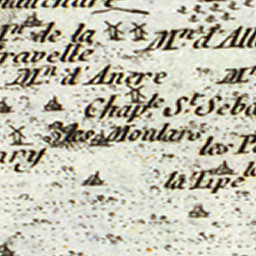 Mn. de la
Mn. d'All
ravelle
Mn. d'Anere
Mn
Chaple St. Seba
les Moulars
ary
les P
la Tipe